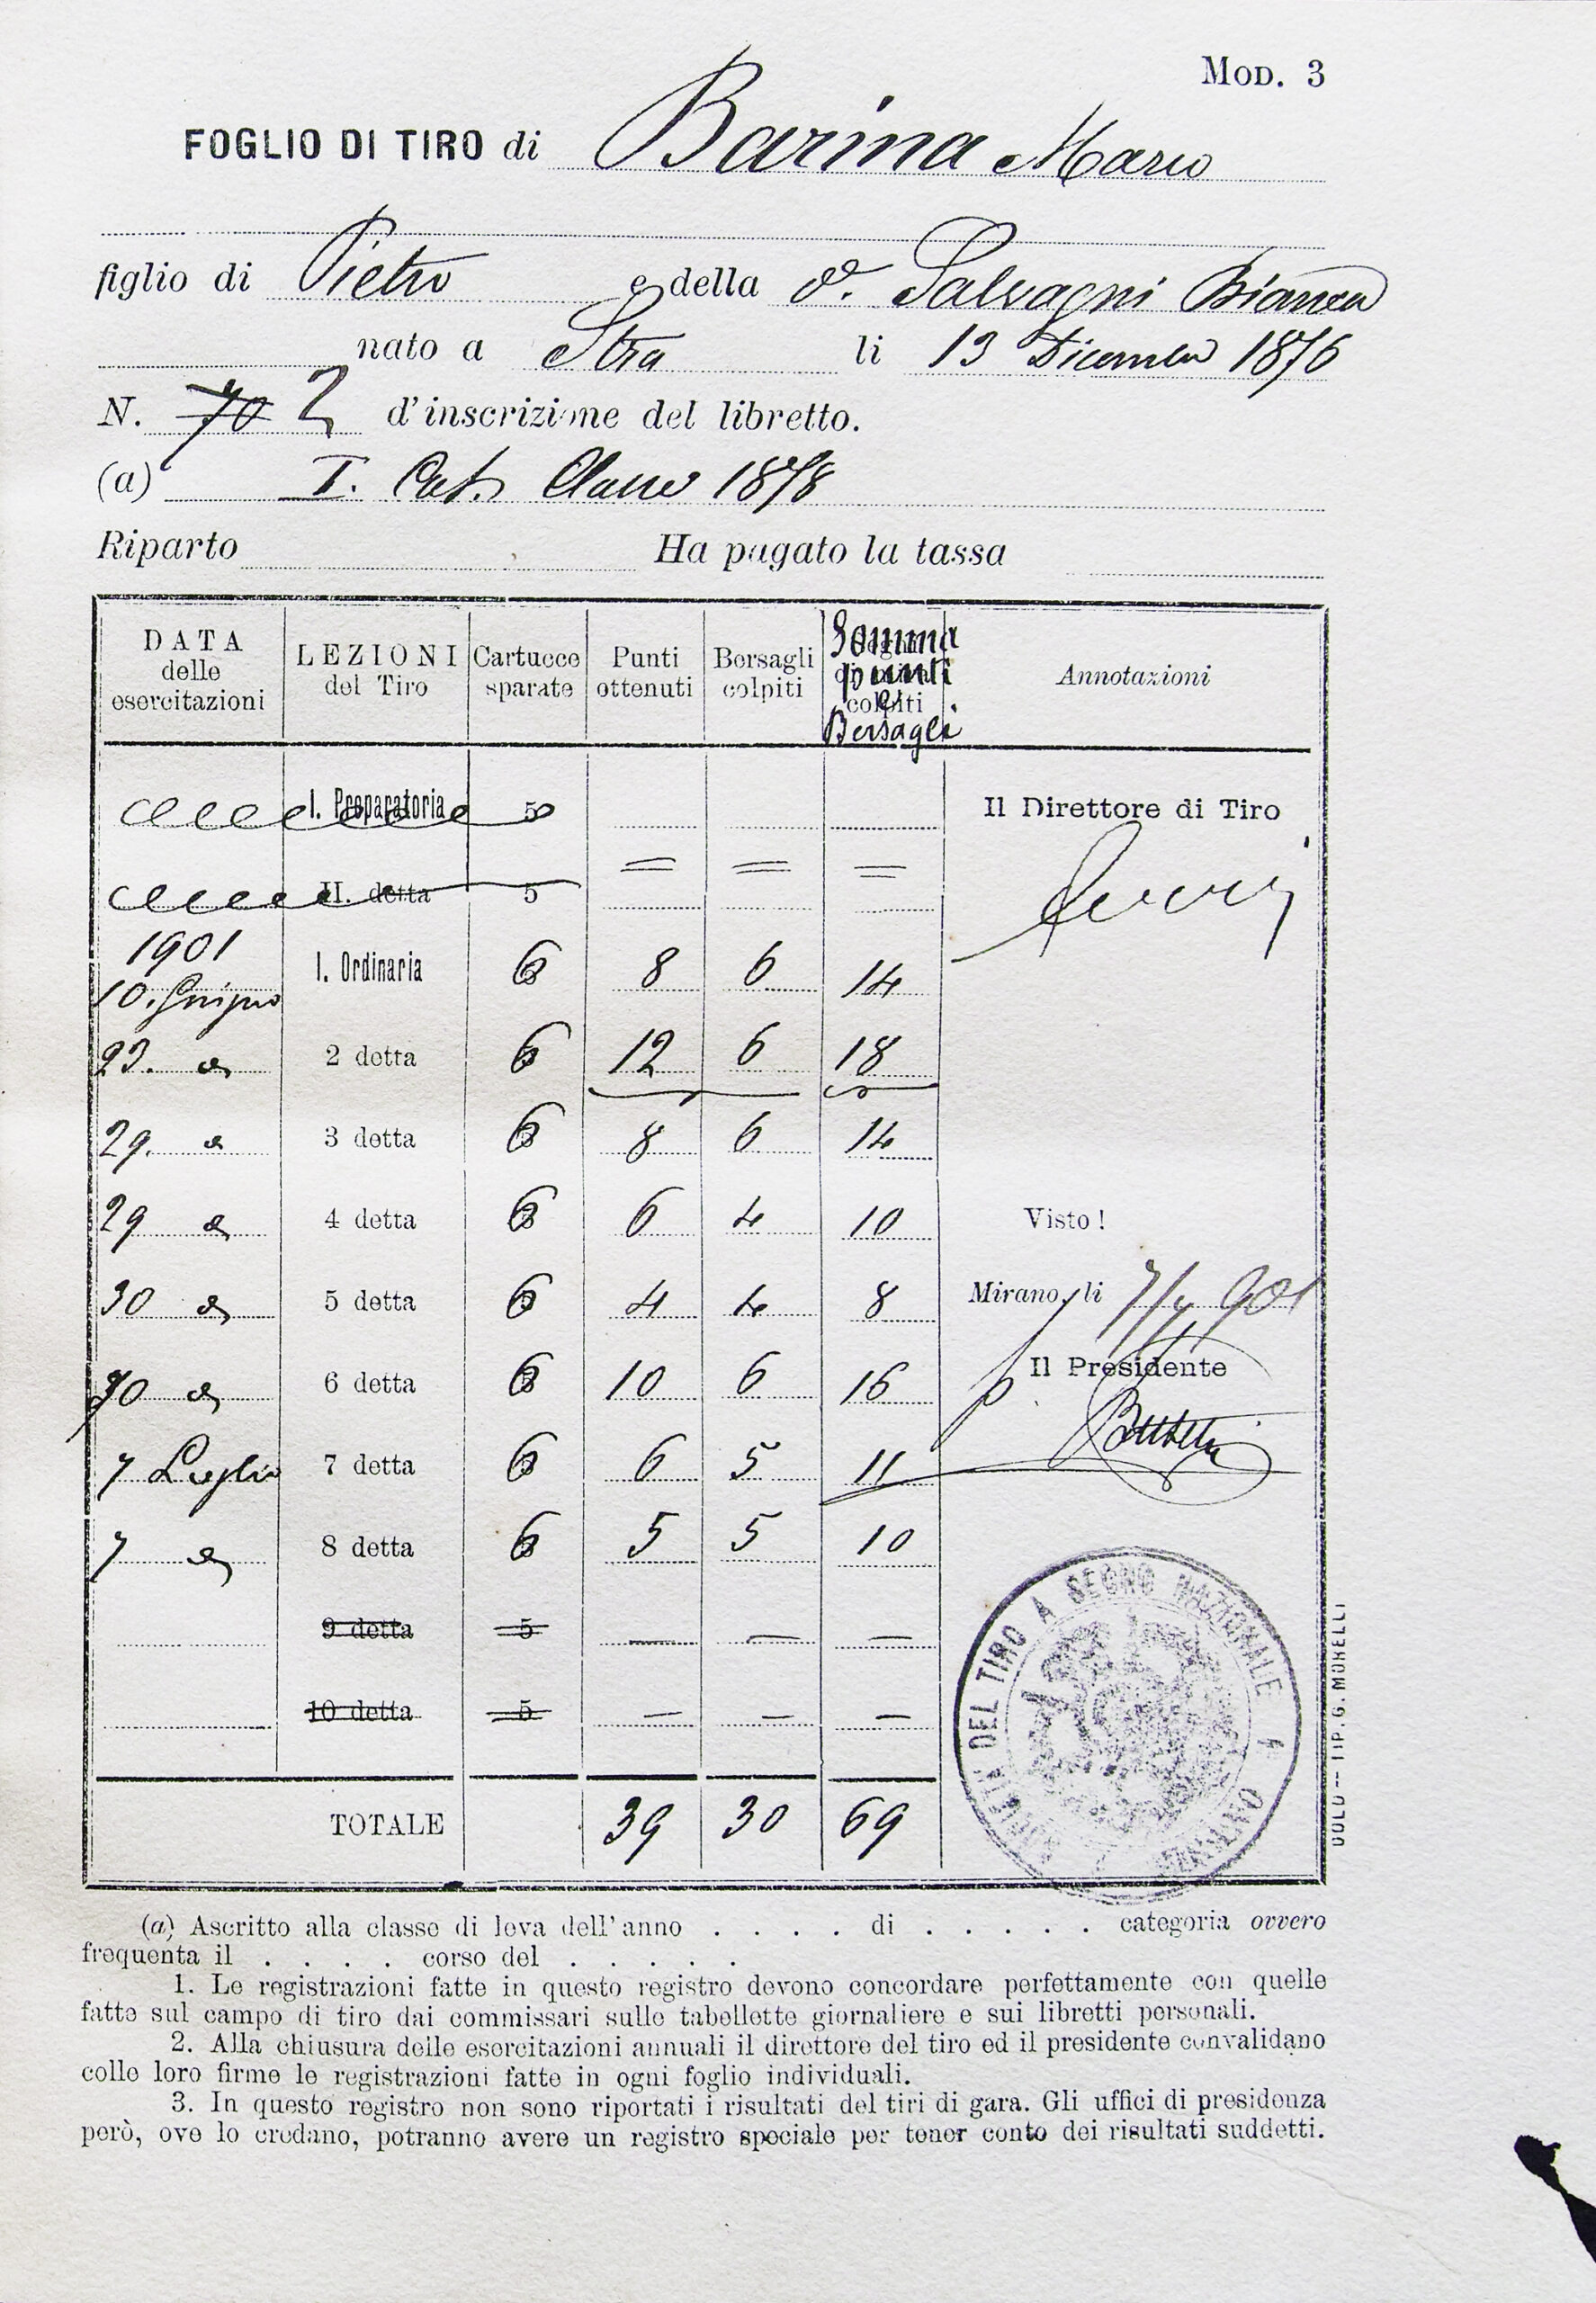 MOD. 3
FOGLIO DI TIRO di Barina Mario
figlio di Pietro e della Salvagni Bianca
nato a Stra li 13 Dicembre 1876
N. 70 2 d'inscrizione del libretto.
(a) I. Cat. Classe 1878
Riparto Ha pagato la tassa
DATA delle esercitazioni LEZIONI del Tiro Cartucce sparate Punti ottenuti Bersagli colpiti Somma punti e Bersagli Annotazioni
I. Preparatoria 5 Il Direttore di Tiro
II. detta 5 = = =
1901
10. Giugno I. Ordinaria 6 8 6 14
23. d 2 detta 6 12 6 18
29. d 3 detta 6 8 6 14
29 d 4 detta 6 6 4 10 Visto!
30 d 5 detta 6 4 4 8 Mirano, li 7/7 901
30 d 6 detta 6 10 6 16 Il Presidente
7 Luglio 7 detta 6 6 5 11
7 d 8 detta 6 5 5 10
9 detta 5 — — —
10 detta 5 — — —
TOTALE 39 30 69
DEL TIRO A SEGNO NAZIONALE
DOLO — TIP. G. MORELLI
(a) Ascritto alla classe di leva dell'anno . . . . di . . . . . categoria ovvero
frequenta il . . . . corso del . . . . .
1. Le registrazioni fatte in questo registro devono concordare perfettamente con quelle
fatte sul campo di tiro dai commissari sulle tabellette giornaliere e sui libretti personali.
2. Alla chiusura delle esercitazioni annuali il direttore del tiro ed il presidente convalidano
colle loro firme le registrazioni fatte in ogni foglio individuali.
3. In questo registro non sono riportati i risultati del tiri di gara. Gli uffici di presidenza
però, ove lo credano, potranno avere un registro speciale per tener conto dei risultati suddetti.